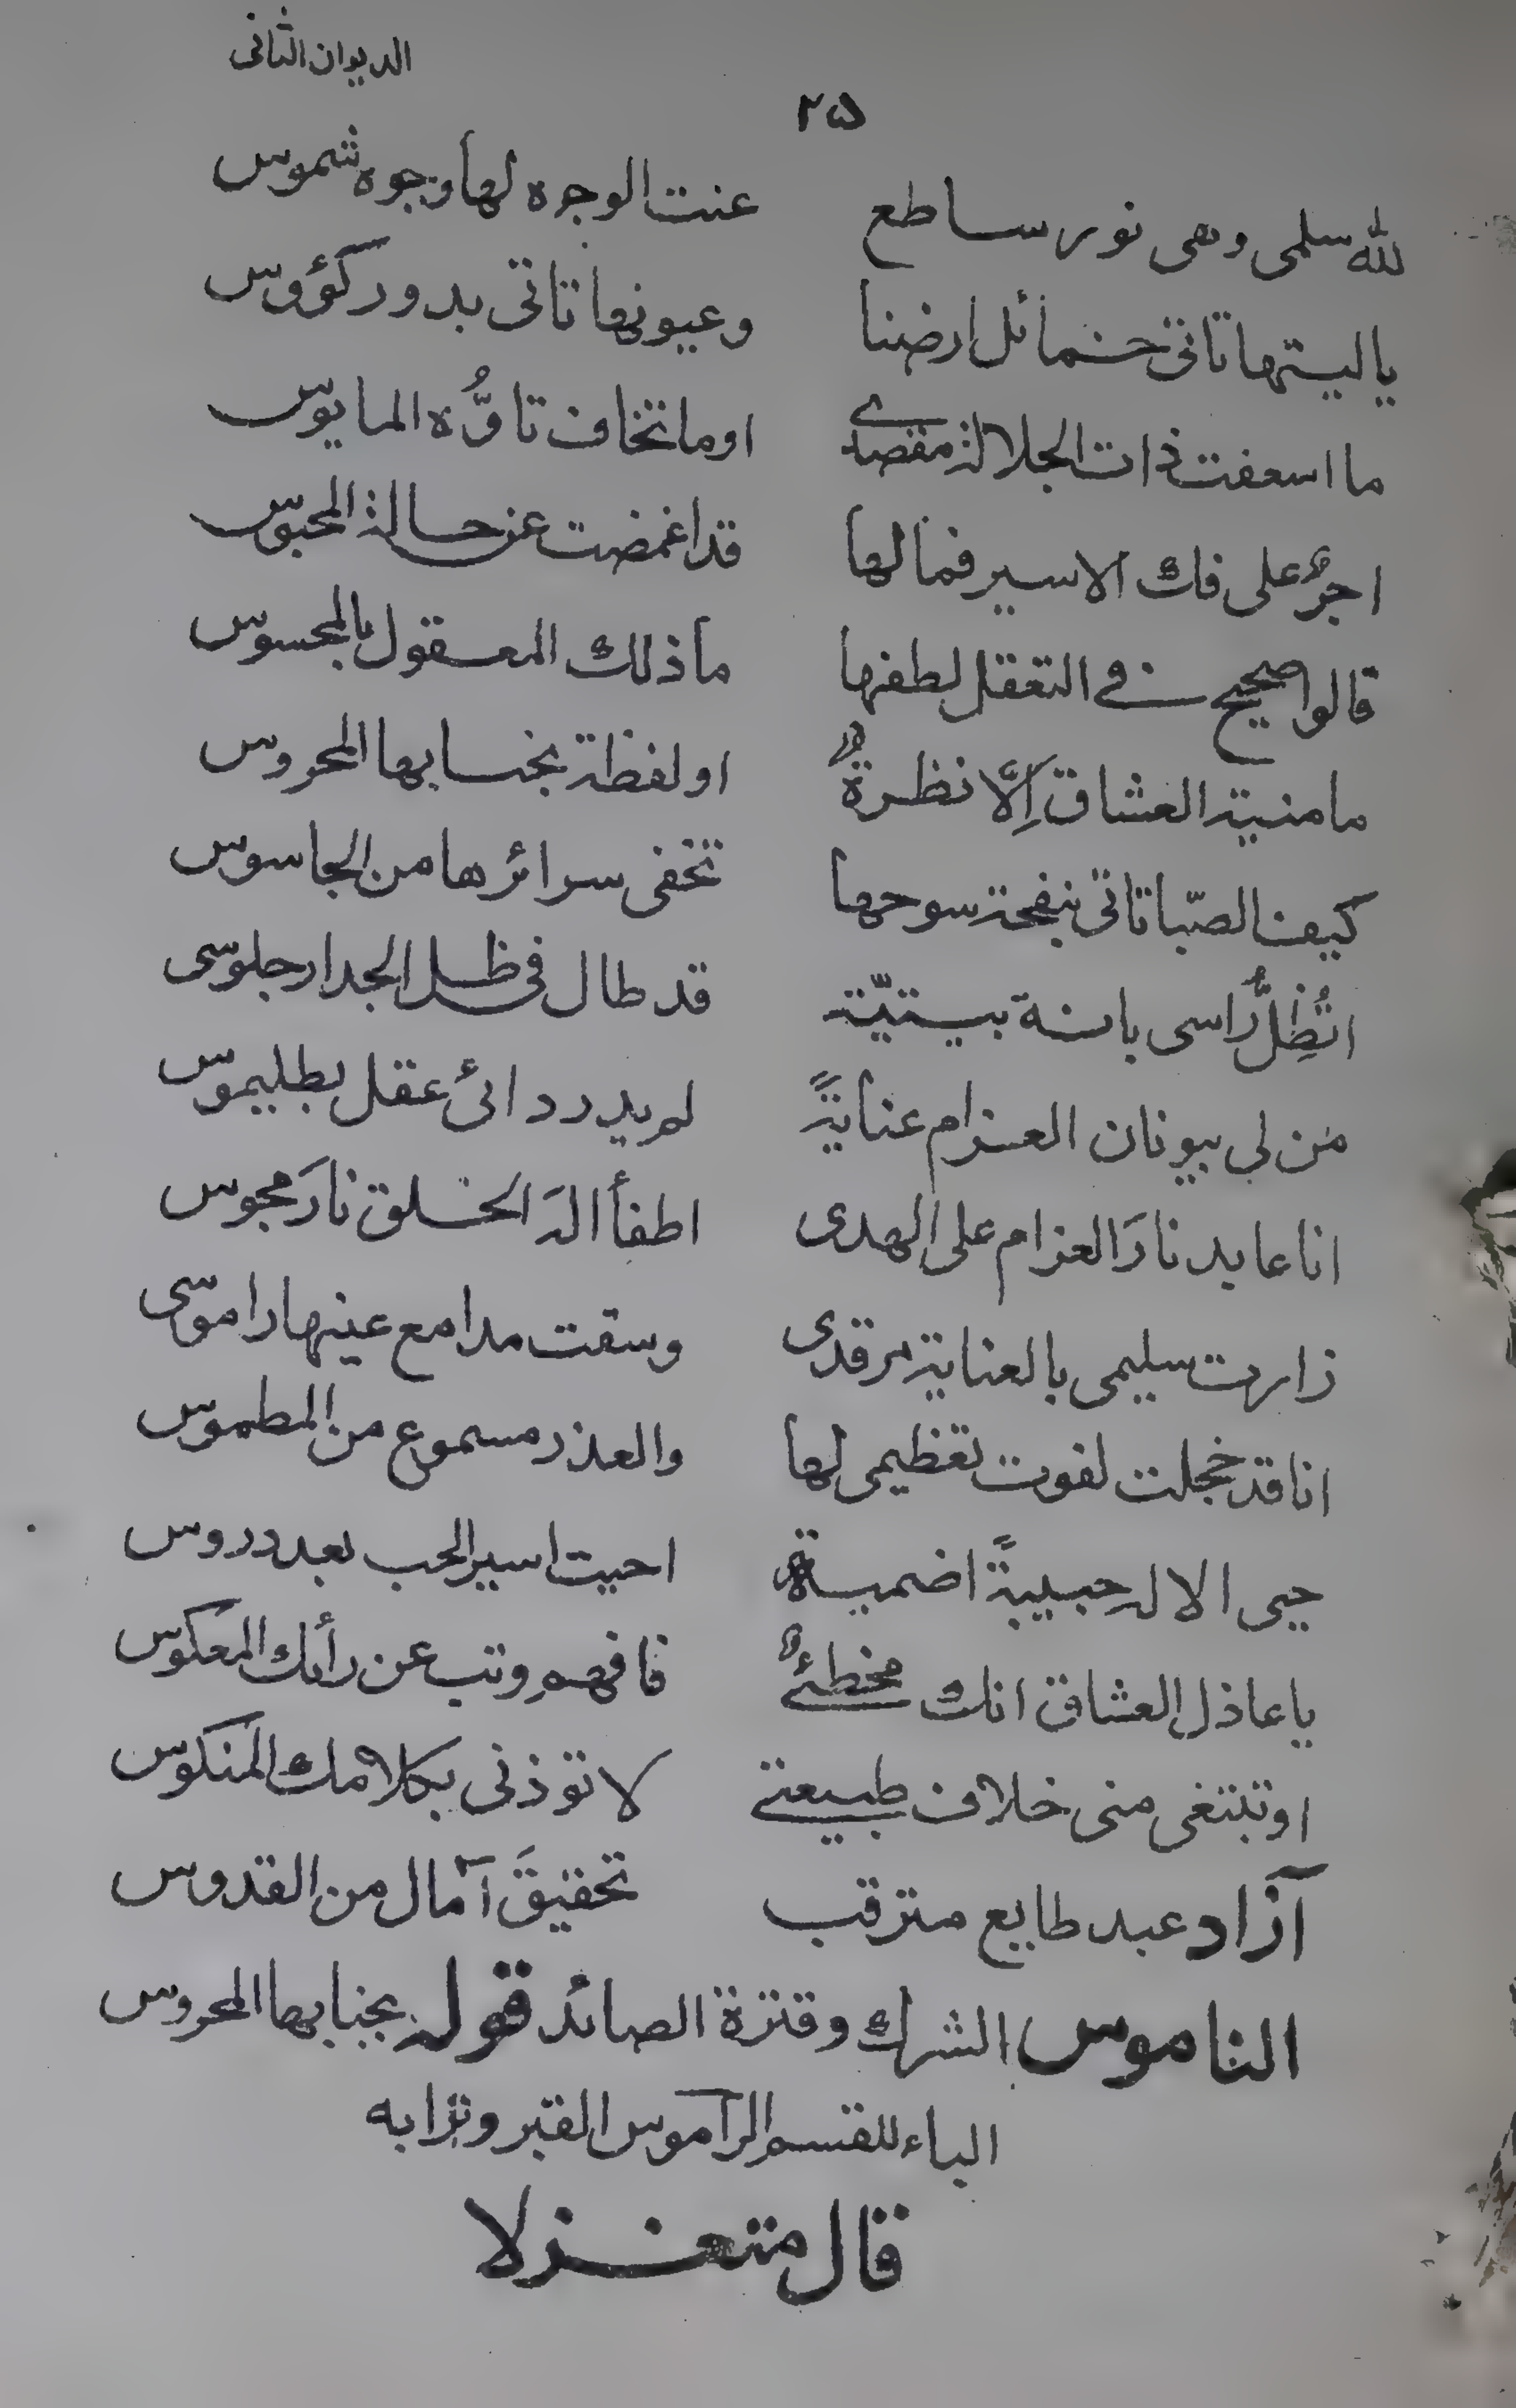 الديوان الثانى
٢٥
لله سلمى وهى نور ساطع عنت الوجوه لها وجوه شموس
ياليتها تاتى خمائل ارضنا وعيونها تاتى بدور كؤوس
ما اسعفت ذات الجلالة مقصدى اوما تخاف تاوُّه المايوس
اجرٌ على فك الاسير فما لها قد اغمضت عن حالة المحبوس
قالوا صحيح فے التعقل لطفها ما ذلك المعقول بالمحسوس
ما منية العشاق اِلَّا نظرةٌ او لفظة بجنابها المحروس
كيف الصّبا تاتى بنفحة سوحها تخفى سرائرها من الجاسوس
اتُظِلُّ راسى بانة بيتيّة قد طال فى ظل الجدار جلوسى
من لى بيونان الغرام عنايةً لم يدر دائى عقل بطليموس
انا عابد نارَ الغرام على الهدى اطفأ اله الخلق نارَ مجوس
زارت سليمى بالعناية مرقدى وسقت مدامع عينها راموسى
انا قد خجلت لفوت تعظيمى لها والعذر مسموع من المطموس
حيى الاله حبيبةً اضمية احيت اسير الحب بعد دروس
يا عاذل العشاق انك مخطئٌ فافهم وتب عن رأيك المعكوس
او تبتغى منى خلاف طبيعتے لا توذنى بكلامك المنكوس
آزاد عبد طايع مترقب تحقيقَ آمال من القدوس
الناموس الشرك وقترة الصائد قوله بجنابها المحروس
الباء للقسم الراموس القبر وترابه
قال متغزلا